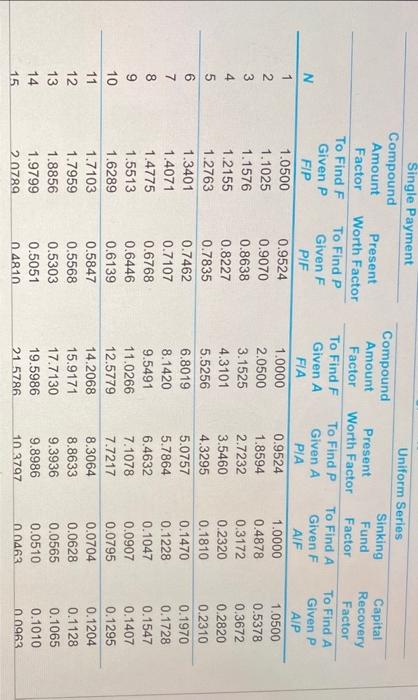 Single Payment Uniform Series
Compound Compound Sinking Capital
Amount Present Amount Present Fund Recovery
Factor Worth Factor Factor Worth Factor Factor Factor
To Find F To Find P To Find F To Find P To Find A To Find A
Given P Given F Given A Given A Given F Given P
N F/P P/F F/A P/A A/F A/P
1 1.0500 0.9524 1.0000 0.9524 1.0000 1.0500
2 1.1025 0.9070 2.0500 1.8594 0.4878 0.5378
3 1.1576 0.8638 3.1525 2.7232 0.3172 0.3672
4 1.2155 0.8227 4.3101 3.5460 0.2320 0.2820
5 1.2763 0.7835 5.5256 4.3295 0.1810 0.2310
6 1.3401 0.7462 6.8019 5.0757 0.1470 0.1970
7 1.4071 0.7107 8.1420 5.7864 0.1228 0.1728
8 1.4775 0.6768 9.5491 6.4632 0.1047 0.1547
9 1.5513 0.6446 11.0266 7.1078 0.0907 0.1407
10 1.6289 0.6139 12.5779 7.7217 0.0795 0.1295
11 1.7103 0.5847 14.2068 8.3064 0.0704 0.1204
12 1.7959 0.5568 15.9171 8.8633 0.0628 0.1128
13 1.8856 0.5303 17.7130 9.3936 0.0565 0.1065
14 1.9799 0.5051 19.5986 9.8986 0.0510 0.1010
15 2.0789 0.4810 21.5786 10.3797 0.0463 0.0963